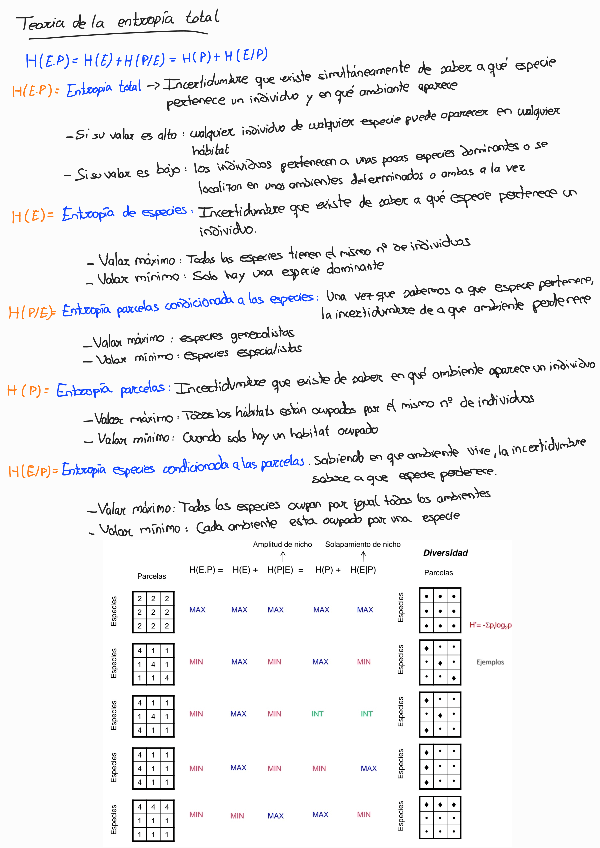 Teoria de la entropía total
H(E.P) = H(E) + H(P/E) = H(P) + H(E/P)
H(E.P) = Entropía total -> Incertidumbre que existe simultáneamente de saber a qué especie
pertenece un individuo y en qué ambiente aparece
- Si su valor es alto : cualquier individuo de cualquier especie puede aparecer en cualquier
hábitat
- Si su valor es bajo : los individuos pertenecen a unas pocas especies dominantes o se
localizan en unos ambientes determinados o ambas a la vez
H(E) = Entropía de especies : Incertidumbre que existe de saber a qué especie pertenece un
individuo.
- Valor máximo : Todas las especies tienen el mismo nº de individuos
- Valor mínimo : Solo hay una especie dominante
H(P/E) = Entropía parcelas condicionada a las especies : Una vez que sabemos a que especie pertenece,
la incertidumbre de a que ambiente pertenece
- Valor máximo : especies generalistas
- Valor mínimo : Especies especialistas
H(P) = Entropía parcelas : Incertidumbre que existe de saber en qué ambiente aparece un individuo
- Valor máximo : Todos los hábitats están ocupados por el mismo nº de individuos
- Valor mínimo : Cuando solo hay un habitat ocupado
H(E/P) = Entropía especies condicionada a las parcelas . Sabiendo en que ambiente vive , la incertidumbre
sobre a que especie pertenece.
- Valor máximo : Todas las especies ocupan por igual todos los ambientes
- Valor mínimo : Cada ambiente esta ocupado por una especie
Amplitud de nicho Solapamiento de nicho Diversidad
Parcelas H(E.P) = H(E) + H(P|E) = H(P) + H(E|P) Parcelas
Especies 2 2 2 MAX MAX MAX MAX MAX Especies
2 2 2
2 2 2 H'= -Σpᵢlog₂pᵢ
Especies 4 1 1 MIN MAX MIN MAX MIN Especies Ejemplos
1 4 1
1 1 4
Especies 4 1 1 MIN MAX MIN INT INT Especies
1 4 1
4 1 1
Especies 4 1 1 MIN MAX MIN MIN MAX Especies
4 1 1
4 1 1
Especies 4 4 4 MIN MIN MAX MAX MIN Especies
1 1 1
1 1 1